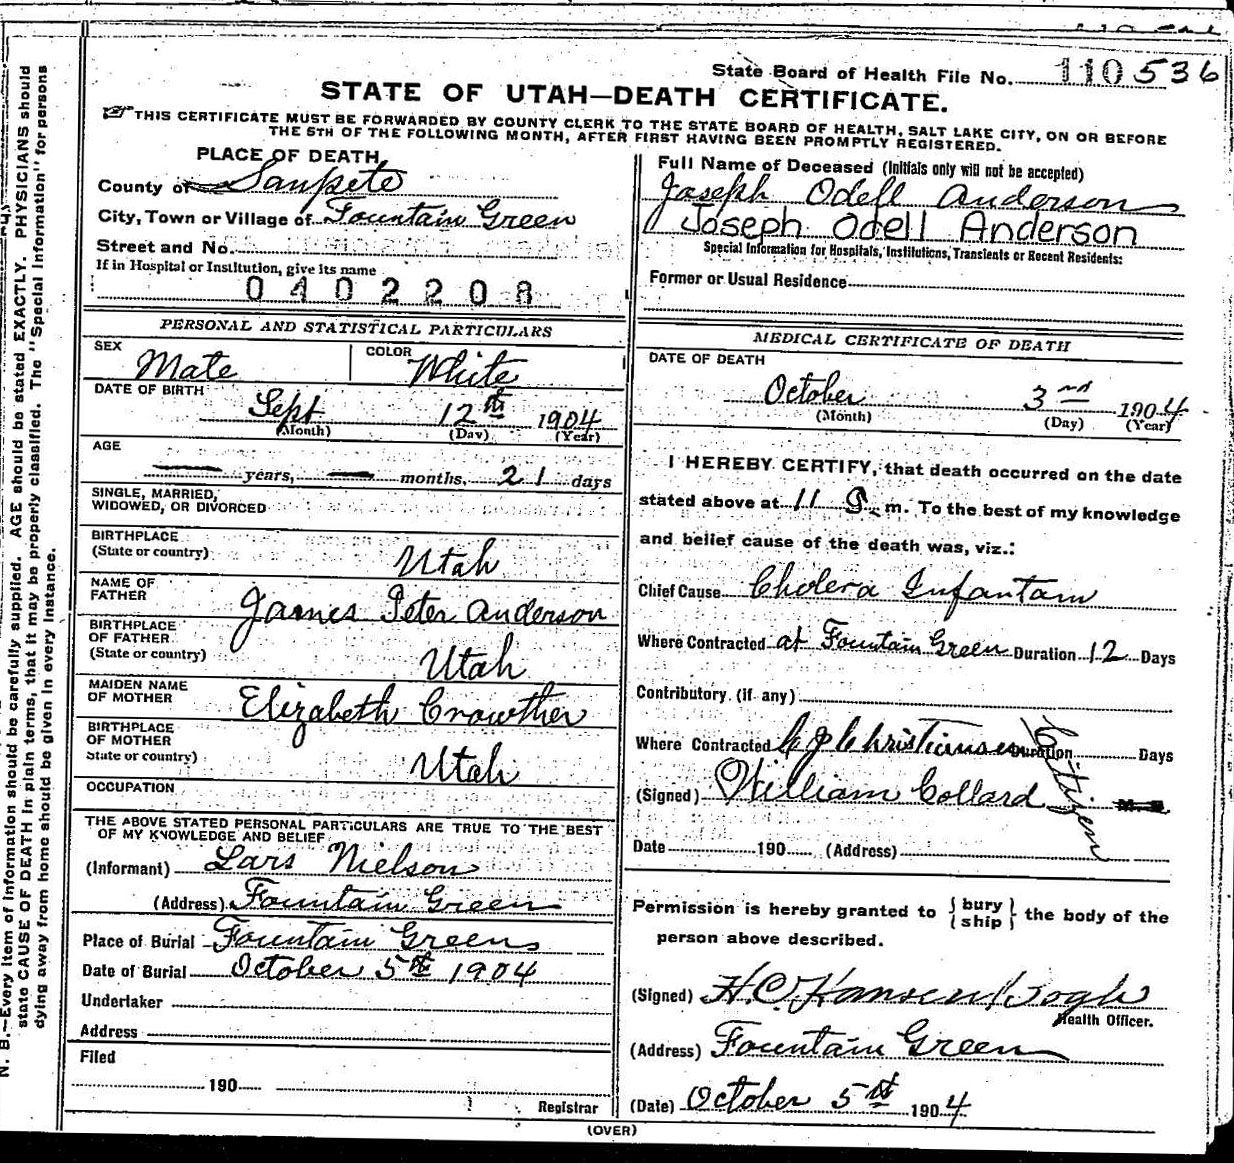 State Board of Health File No. 110536
STATE OF UTAH—DEATH CERTIFICATE.
THIS CERTIFICATE MUST BE FORWARDED BY COUNTY CLERK TO THE STATE BOARD OF HEALTH, SALT LAKE CITY, ON OR BEFORE
THE 5TH OF THE FOLLOWING MONTH, AFTER FIRST HAVING BEEN PROMPTLY REGISTERED.
PLACE OF DEATH
County of Sanpete
City, Town or Village of Fountain Green
Street and No.
If in Hospital or Institution, give its name
0402208
PERSONAL AND STATISTICAL PARTICULARS
SEX Male COLOR White
DATE OF BIRTH
Sept 12th 1904
(Month) (Day) (Year)
AGE
— years, — months, 21 days
SINGLE, MARRIED,
WIDOWED, OR DIVORCED
BIRTHPLACE
(State or country) Utah
NAME OF
FATHER James Peter Anderson
BIRTHPLACE
OF FATHER
(State or country) Utah
MAIDEN NAME
OF MOTHER Elizabeth Crowther
BIRTHPLACE
OF MOTHER
State or country) Utah
OCCUPATION
THE ABOVE STATED PERSONAL PARTICULARS ARE TRUE TO THE BEST
OF MY KNOWLEDGE AND BELIEF
(Informant) Lars Nielson
(Address) Fountain Green
Place of Burial Fountain Green
Date of Burial October 5th 1904
Undertaker
Address
Filed
190
Registrar
Full Name of Deceased (Initials only will not be accepted)
Joseph Odell Anderson
Joseph Odell Anderson
Special Information for Hospitals, Institutions, Transients or Recent Residents:
Former or Usual Residence
MEDICAL CERTIFICATE OF DEATH
DATE OF DEATH
October 3nd 1904
(Month) (Day) (Year)
I HEREBY CERTIFY, that death occurred on the date
stated above at 11 m. To the best of my knowledge
and belief cause of the death was, viz.:
Chief Cause Cholera Infantam
Where Contracted at Fountain Green Duration 12 Days
Contributory (if any)
Where Contracted Christiansen Duration Days
(Signed) William Collard M. D.
Citizen
Date 190 (Address)
Permission is hereby granted to { bury
ship } the body of the
person above described.
(Signed) H.C. Hansen
Health Officer.
(Address) Fountain Green
(Date) October 5th 1904
(OVER)
N. B.—Every item of information should be carefully supplied. AGE should be stated EXACTLY. PHYSICIANS should
state CAUSE OF DEATH in plain terms, that it may be properly classified. The "Special Information" for persons
dying away from home should be given in every instance.